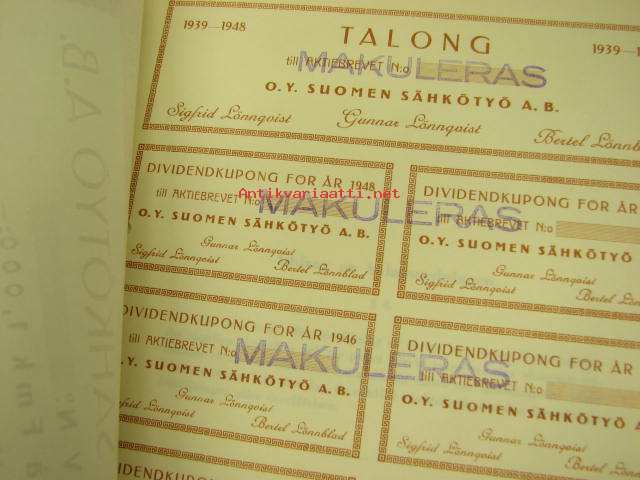 1939—1948
TALONG
1939—1
till AKTIEBREVET N:o
MAKULERAS
O.Y. SUOMEN SÄHKÖTYÖ A.B.
Sigfrid Lönnqvist
Gunnar Lönnqvist
Bertel Lönnbla
DIVIDENDKUPONG FÖR ÅR 1948
till AKTIEBREVET N:o
O.Y. SUOMEN SÄHKÖTYÖ A.B.
Gunnar Lönnqvist
Sigfrid Lönnqvist
Bertel Lönnblad
DIVIDENDKUPONG FÖR ÅR
till AKTIEBREVET N:o
O.Y. SUOMEN SÄHKÖTYÖ
Gunnar Lönnqvist
Sigfrid Lönnqvist
Bertel Lönn
MAKULERAS
Antikvariaatti.net
DIVIDENDKUPONG FÖR ÅR 1946
till AKTIEBREVET N:o
O.Y. SUOMEN SÄHKÖTYÖ A.B.
Gunnar Lönnqvist
Lönnqvist
Bertel Lönnblad
DIVIDENDKUPONG FÖR ÅR
till AKTIEBREVET N:o
O.Y. SUOMEN SÄHKÖTYÖ
Gunnar Lönnqvist
Sigfrid Lönnqvist
Bertel
MAKULERAS
DIVIDENDKUPONG
Fmk 1,000: